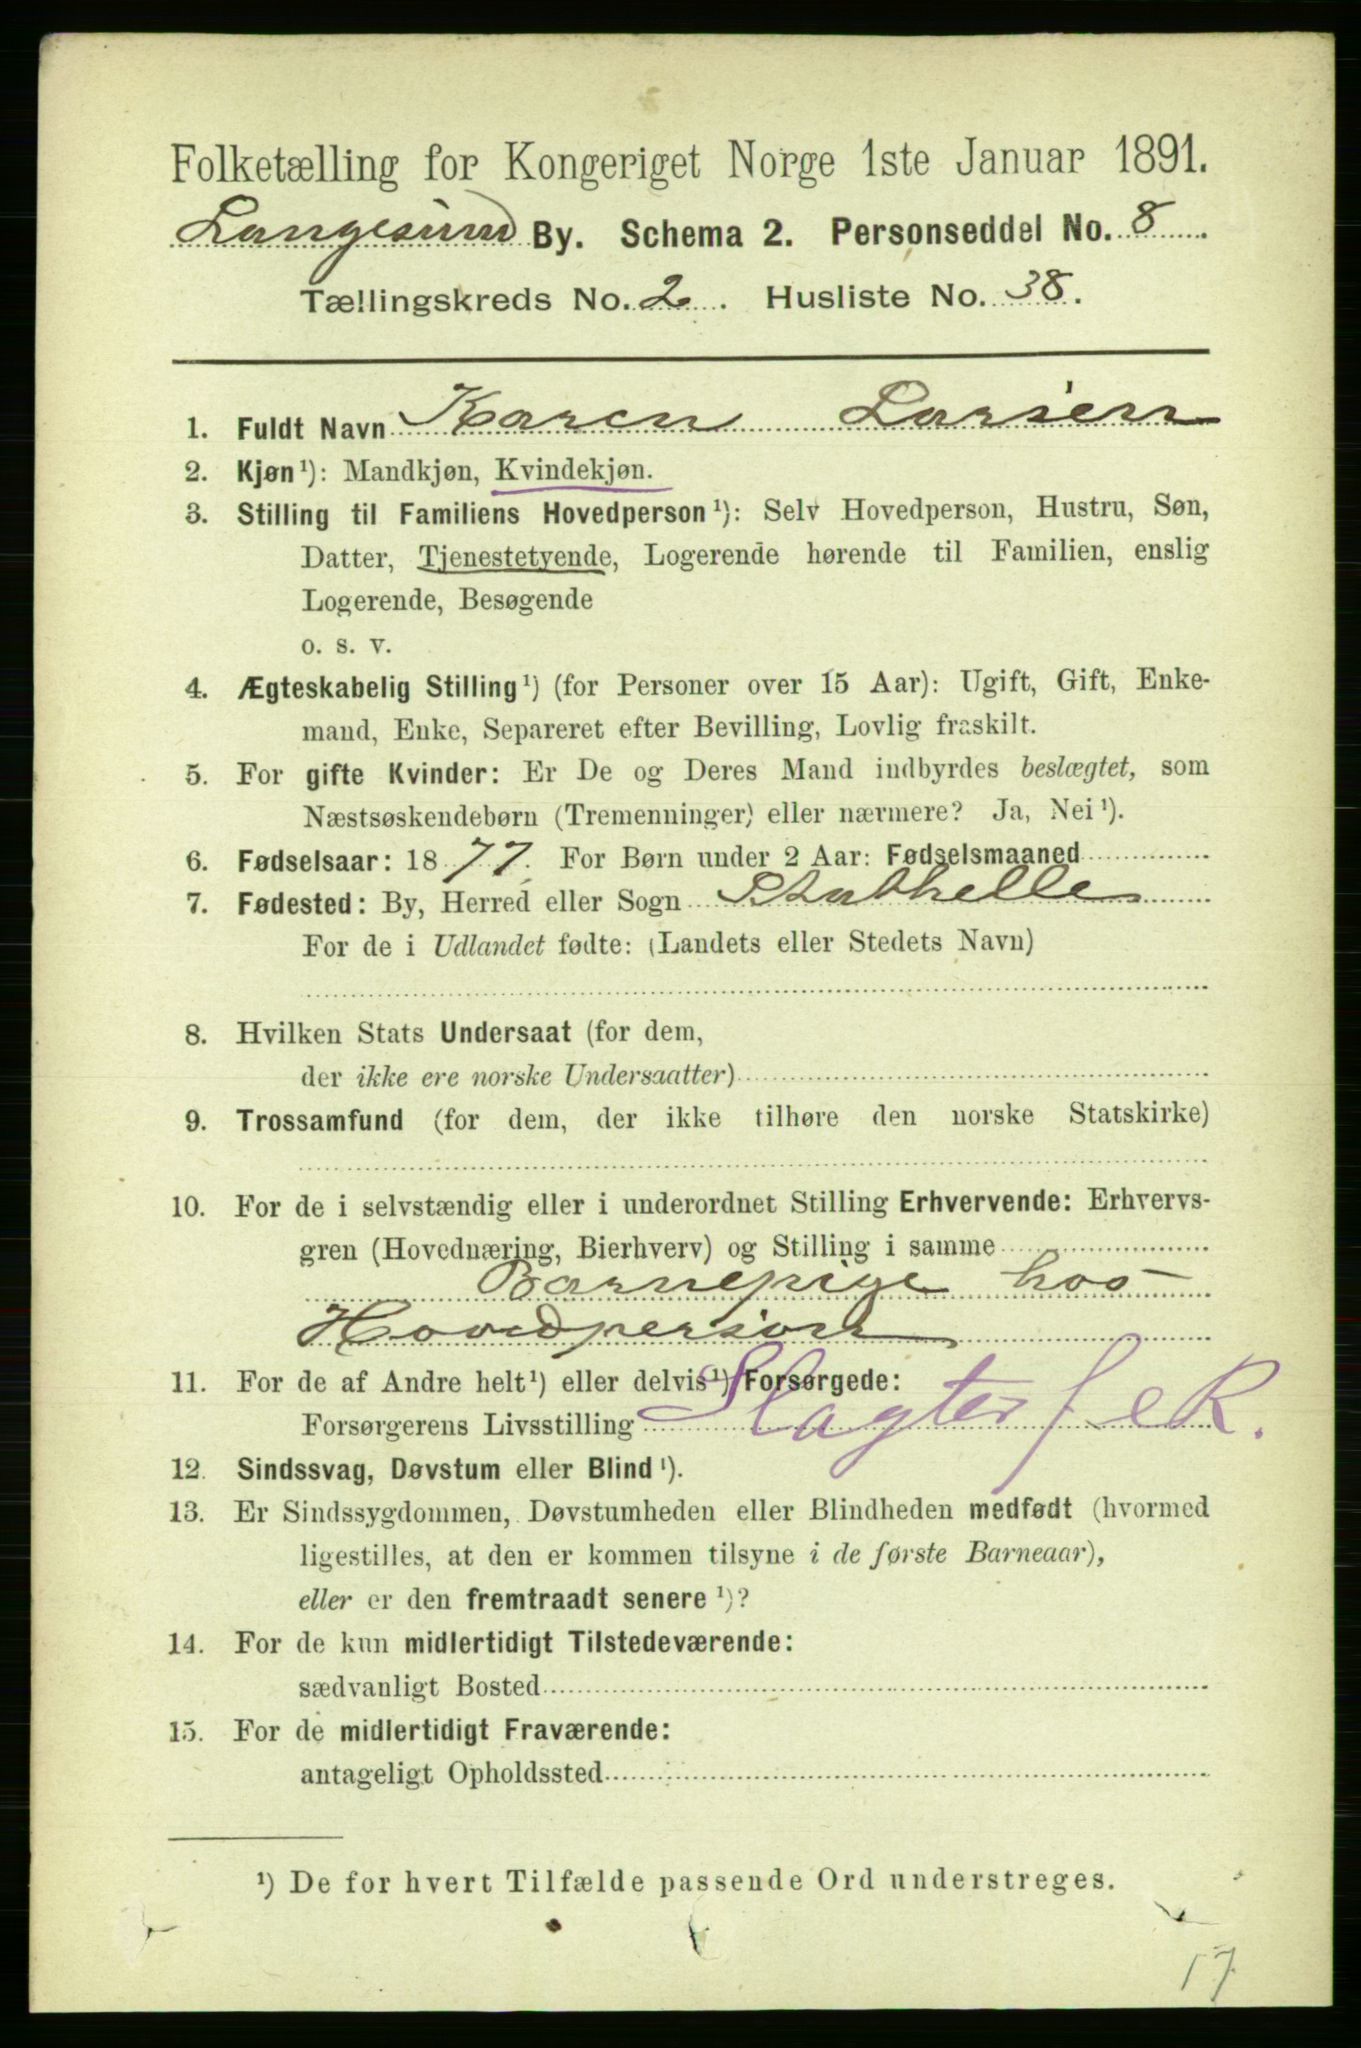 Folketælling for Kongeriget Norge 1ste Januar 1891.
Langesund By. Schema 2. Personseddel No. 8
Tællingskreds No. 2. Husliste No. 38.
1. Fuldt Navn Karen Larsen
2. Kjøn¹): Mandkjøn, Kvindekjøn.
3. Stilling til Familiens Hovedperson¹): Selv Hovedperson, Hustru, Søn,
Datter, Tjenestetyende, Logerende hørende til Familien, enslig
Logerende, Besøgende
o. s. v.
4. Ægteskabelig Stilling¹) (for Personer over 15 Aar): Ugift, Gift, Enke-
mand, Enke, Separeret efter Bevilling, Lovlig fraskilt.
5. For gifte Kvinder: Er De og Deres Mand indbyrdes beslægtet, som
Næstsøskendebørn (Tremenninger) eller nærmere? Ja, Nei¹).
6. Fødselsaar: 1877. For Børn under 2 Aar: Fødselsmaaned
7. Fødested: By, Herred eller Sogn Stathelle
For de i Udlandet fødte: (Landets eller Stedets Navn)
8. Hvilken Stats Undersaat (for dem,
der ikke ere norske Undersaatter)
9. Trossamfund (for dem, der ikke tilhøre den norske Statskirke)
10. For de i selvstændig eller i underordnet Stilling Erhvervende: Erhvervs-
gren (Hovednæring, Bierhverv) og Stilling i samme
Barnepige hos
Hovedperson
11. For de af Andre helt¹) eller delvis¹) Forsørgede:
Forsørgerens Livsstilling Slagter f e R.
12. Sindssvag, Døvstum eller Blind¹).
13. Er Sindssygdommen, Døvstumheden eller Blindheden medfødt (hvormed
ligestilles, at den er kommen tilsyne i de første Barneaar),
eller er den fremtraadt senere¹)?
14. For de kun midlertidigt Tilstedeværende:
sædvanligt Bosted
15. For de midlertidigt Fraværende:
antageligt Opholdssted
¹) De for hvert Tilfælde passende Ord understreges.
17